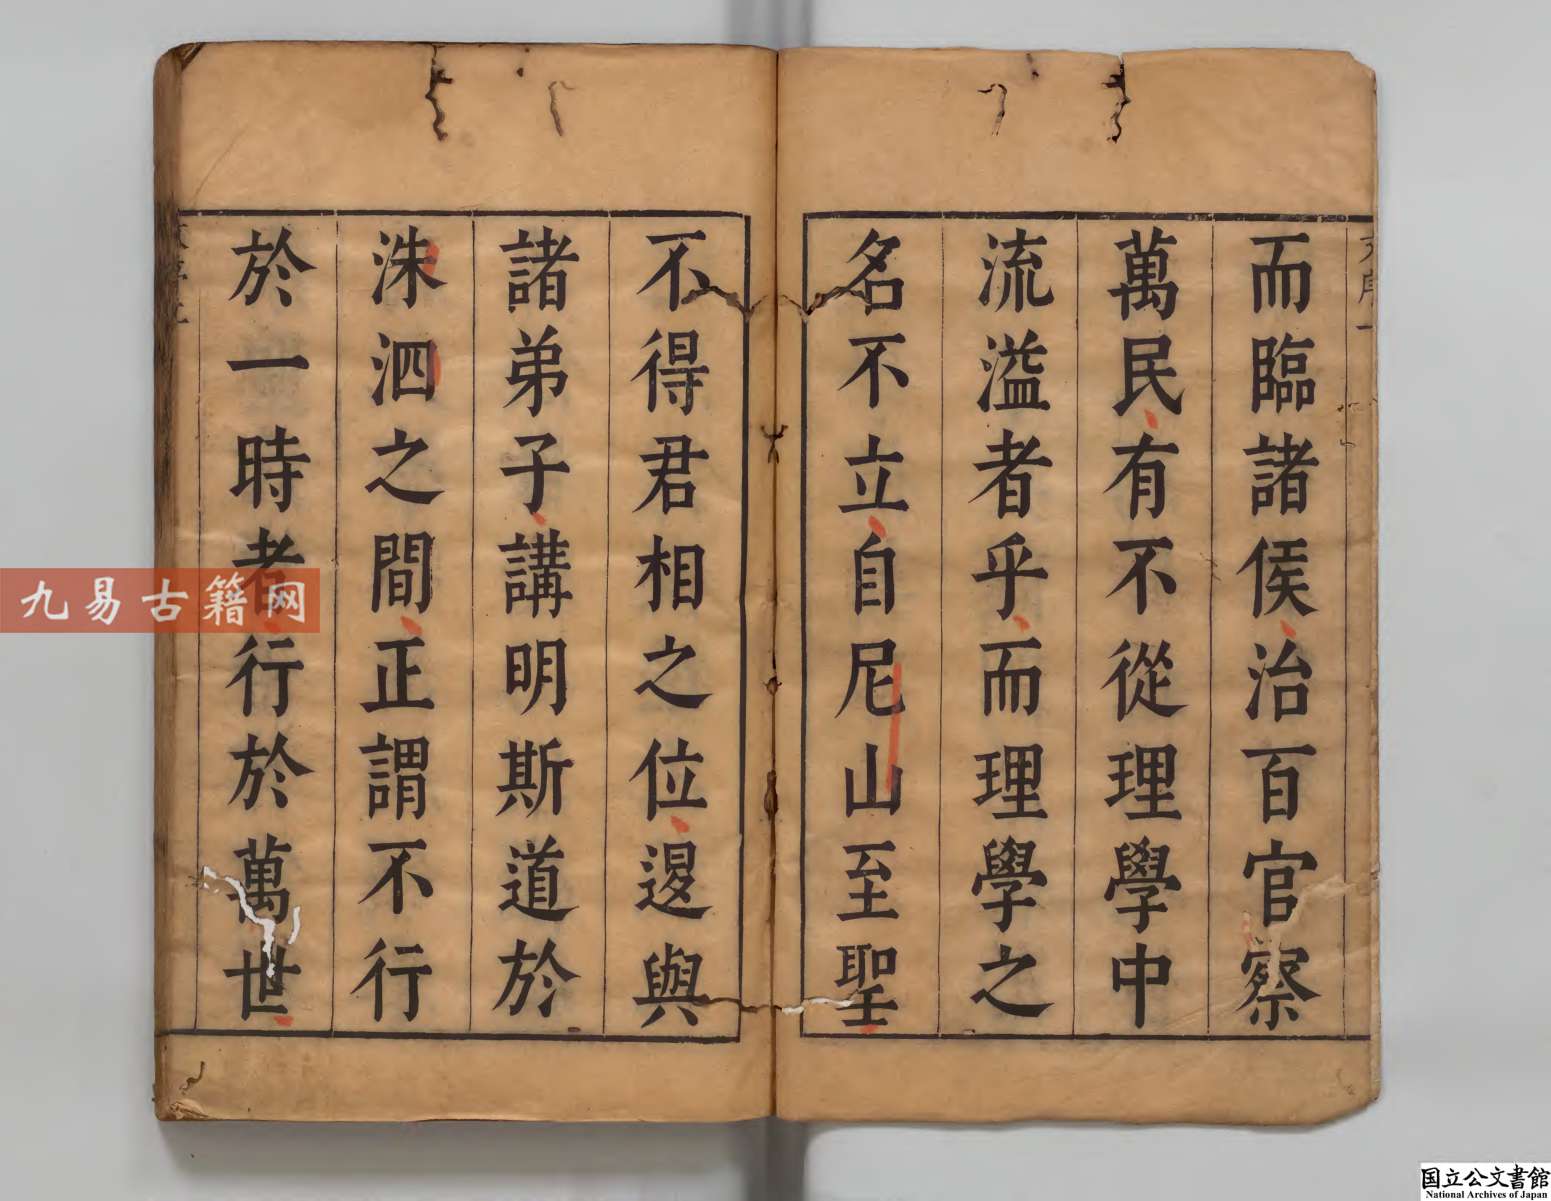 而臨諸侯治百官察
萬民有不從理學中
流溢者乎而理學之
名不立自尼山至聖
不得君相之位退與
諸弟子講明斯道於
洙泗之間正謂不行
於一時者行於萬世
九易古籍网
国立公文書館
National Archives of Japan